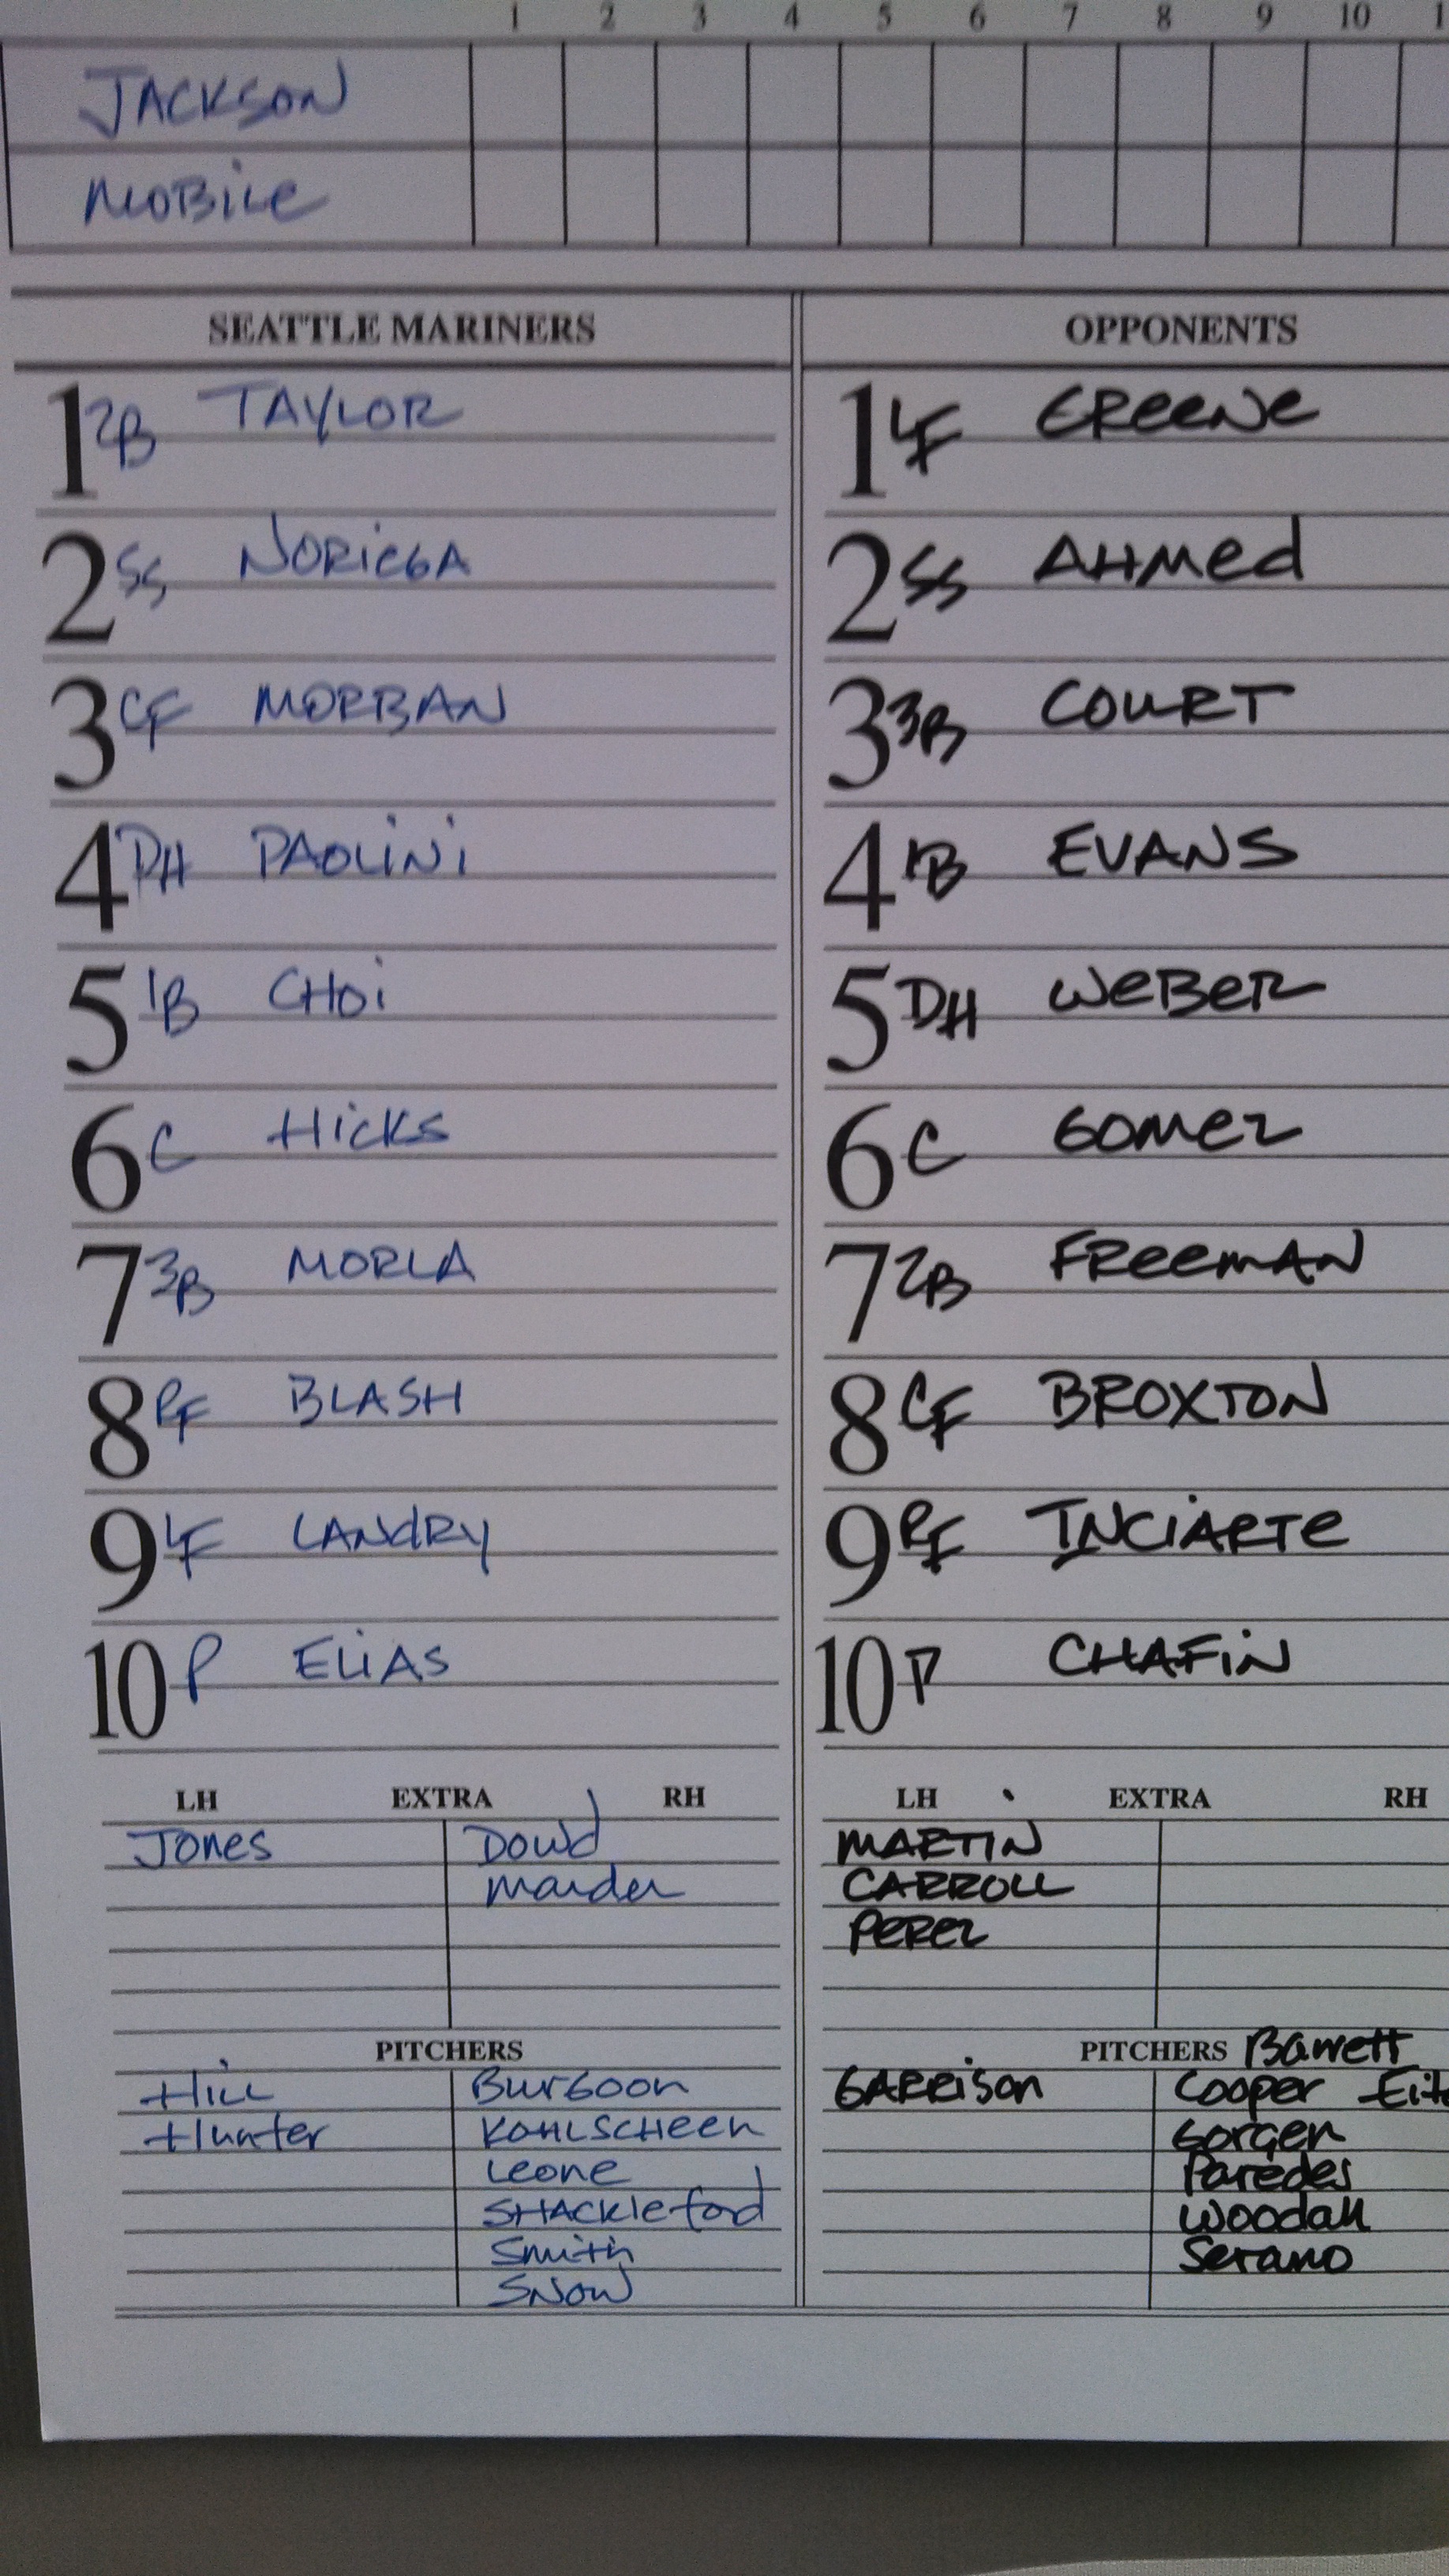 1 2 3 4 5 6 7 8 9 10 1
JACKSON
MOBILE
SEATTLE MARINERS
1 2B TAYLOR
2 SS NORIEGA
3 CF MORBAN
4 DH PAOLINI
5 1B CHOI
6 C HICKS
7 3B MORLA
8 RF BLASH
9 LF LANDRY
10 P ELIAS
LH EXTRA RH
Jones Dowd
Marder
PITCHERS
Hill Burgoon
Hunter KOHLSCHEEN
Leone
SHACKleford
Smith
SNOW
OPPONENTS
1 LF GREENE
2 SS AHMED
3 3B COURT
4 1B EVANS
5 DH WEBER
6 C GOMEZ
7 2B FREEMAN
8 CF BROXTON
9 RF INCIARTE
10 P CHAFIN
LH EXTRA RH
MARTIN
CARROLL
PEREZ
PITCHERS Barrett
GARRISON Cooper
Gorgen
Paredes
Woodall
Serano